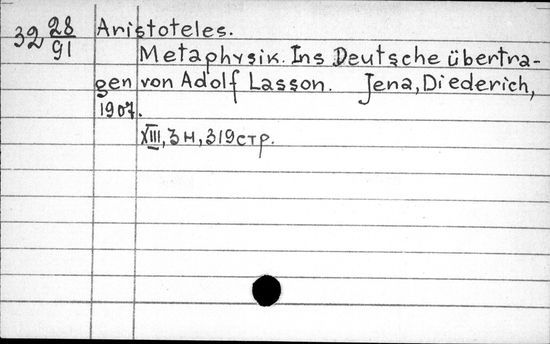 32 28/91 Aristoteles.
Metaphysik. Ins Deutsche übertra-
gen von Adolf Lasson. Jena, Diederich,
1907.
XIII, 3н, 319стр.